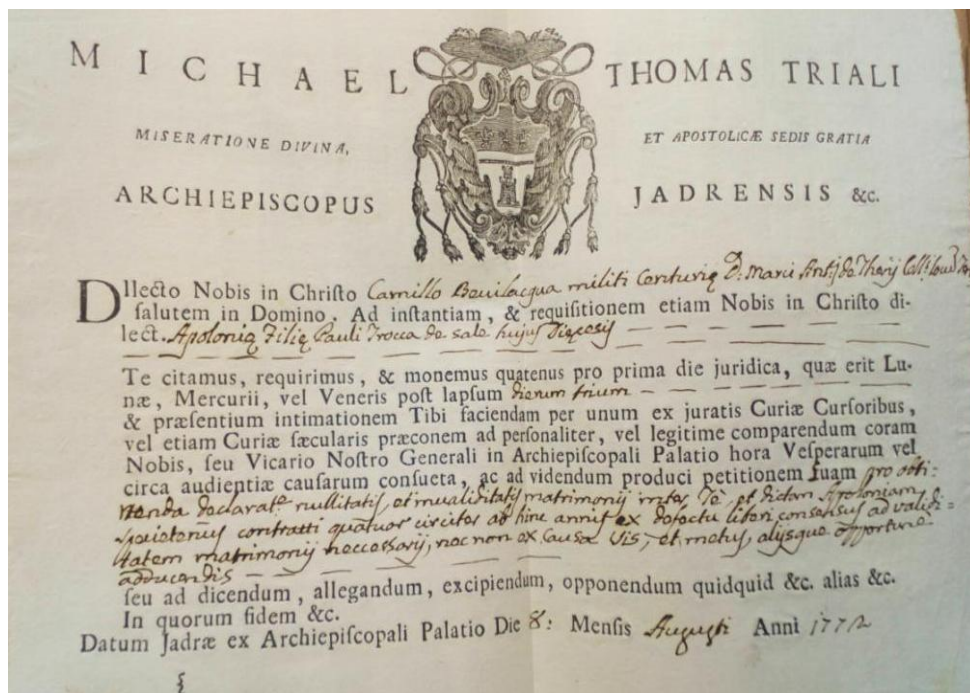 MICHAEL THOMAS TRIALI
MISERATIONE DIVINA, ET APOSTOLICÆ SEDIS GRATIA
ARCHIEPISCOPUS JADRENSIS &c.
DIlecto Nobis in Christo Camillo Bevilacqua militi Conturię D: Marci Antij de Therij
salutem in Domino. Ad instantiam, & requisitionem etiam Nobis in Christo di-
lect. Apolonię Filię Pauli Trocca de Sale hujus Dięcesis
Te citamus, requirimus, & monemus quatenus pro prima die juridica, quæ erit Lu-
næ, Mercurii, vel Veneris post lapsum dierum trium
& præsentium intimationem Tibi faciendam per unum ex juratis Curiæ Cursoribus,
vel etiam Curiæ sæcularis præconem ad personaliter, vel legitime comparendum coram
Nobis, seu Vicario Nostro Generali in Archiepiscopali Palatio hora Vesperarum vel
circa audientiæ causarum consueta, ac ad videndum produci petitionem suam pro obti:
nenda declarat.e nullitatis, et invaliditatis matrimonij inter Te, et dictam Apoloniam
contratti quatuor circiter ab hinc annis ex defectu liberi consensus ad validi:
tatem matrimonij neccessarij, nec non ex causa vis, et metus, alijsque opportune
adducendis
seu ad dicendum, allegandum, excipiendum, opponendum quidquid &c. alias &c.
In quorum fidem &c.
Datum Jadræ ex Archiepiscopali Palatio Die 8: Mensis Augusti Anni 1772